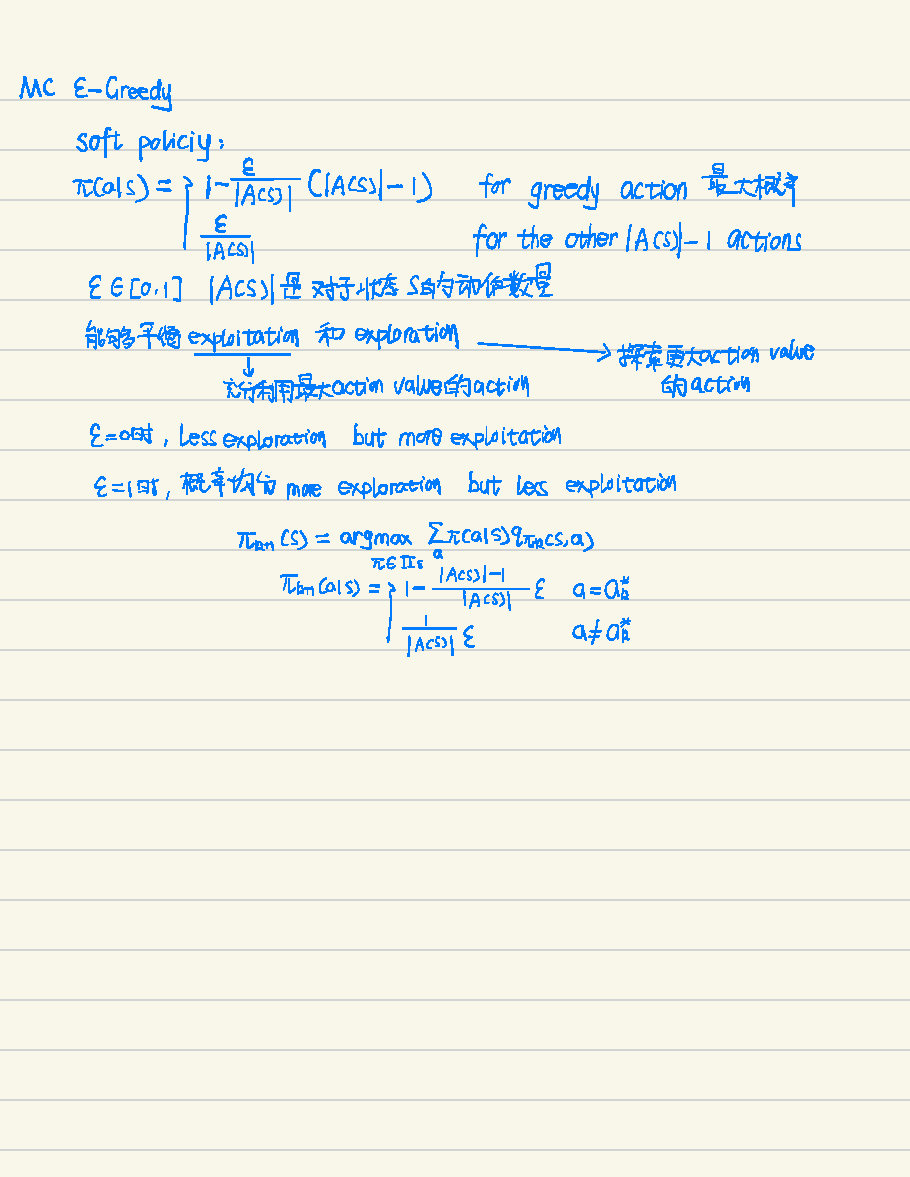 MC ε-Greedy
soft policiy:
π(a|s) = { 1 - ε/|A(s)| (|A(s)| - 1) for greedy action 最大概率
ε/|A(s)| for the other |A(s)| - 1 actions
ε ∈ [0,1] |A(s)| 是 对于状态 s的动作数量
能够平衡 exploitation 和 exploration → 探索更大action value
的 action
↓ 充分利用最大action value的action
ε=0时, Less exploration but more exploitation
ε=1时, 概率均匀 more exploration but less exploitation
π_{k+1}(s) = argmax_{π∈Π_ε} Σ_a π(a|s) q_{π_k}(s,a)
π_{k+1}(a|s) = { 1 - (|A(s)|-1)/|A(s)| ε a = a_k^*
1/|A(s)| ε a ≠ a_k^*